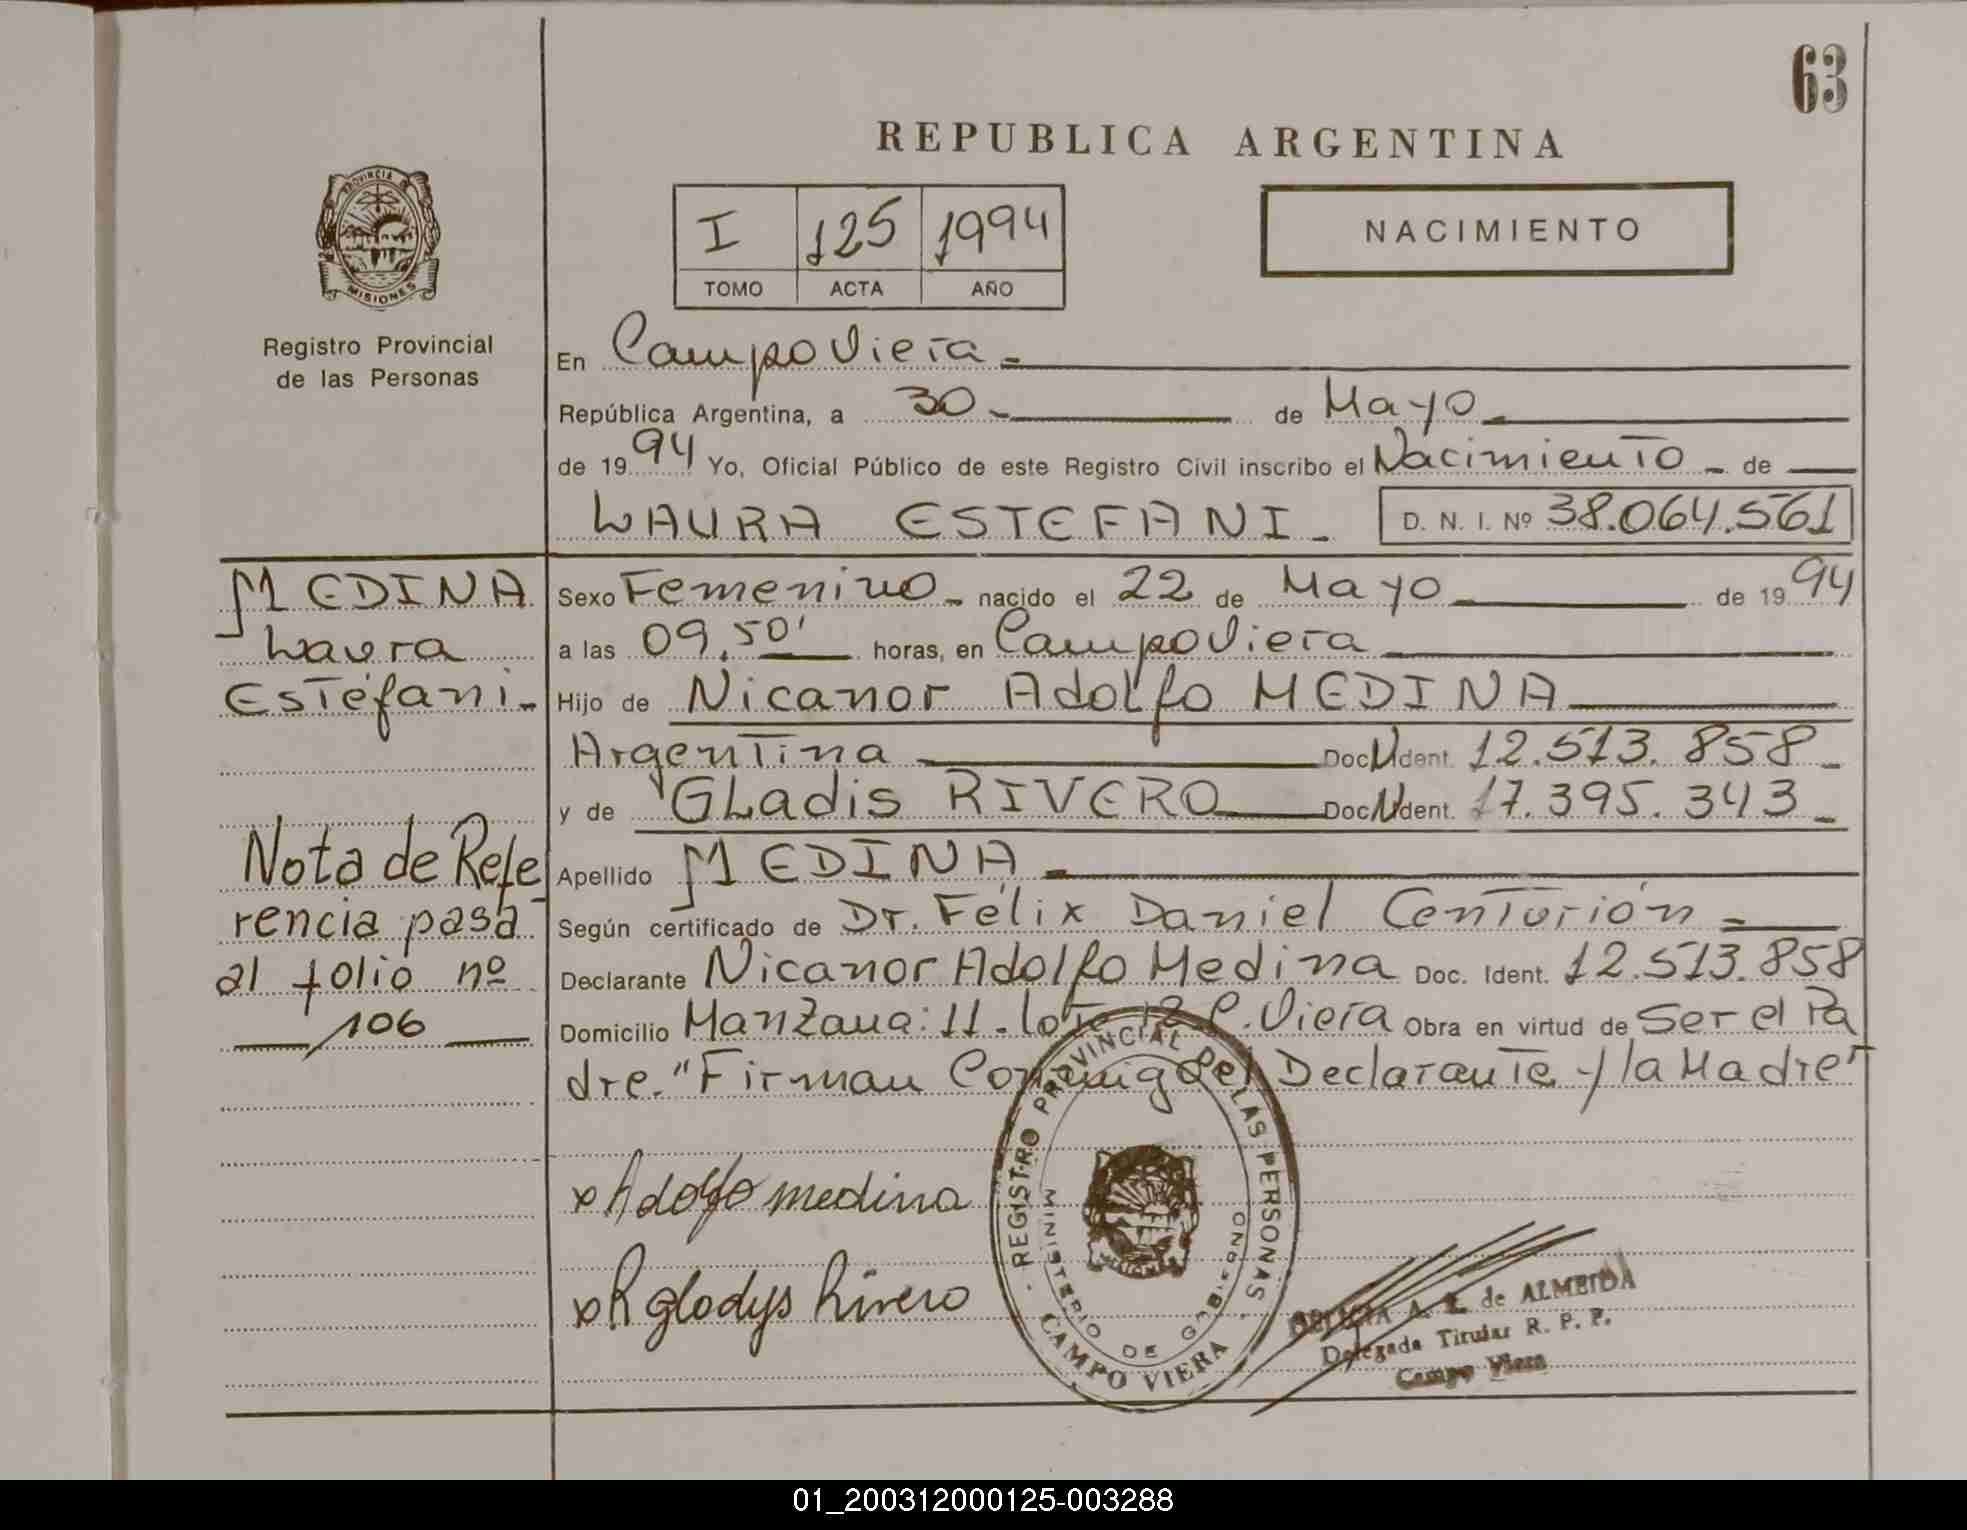 63
REPUBLICA ARGENTINA
PROVINCIA DE MISIONES
I 125 1994
TOMO ACTA AÑO
NACIMIENTO
Registro Provincial
de las Personas
En Campo Viera -
República Argentina, a 30 - de Mayo -
de 1994 Yo, Oficial Público de este Registro Civil inscribo el Nacimiento - de
LAURA ESTEFANI - D. N. I. Nº 38.064.561
MEDINA
Laura
Estéfani -
Nota de Refe
rencia pasa
al folio nº
106
Sexo Femenino - nacido el 22 de Mayo de 1994
a las 09,50' horas, en Campo Viera
Hijo de Nicanor Adolfo MEDINA
Argentina Doc. Ident. 12.513.858 -
y de Gladis RIVERO Doc. Ident. 17.395.343 -
Apellido MEDINA -
Según certificado de Dr. Félix Daniel Centurión -
Declarante Nicanor Adolfo Medina Doc. Ident. 12.513.858
Domicilio Manzana: 11 - lote 12 C. Viera Obra en virtud de Ser el Pa
dre. "Firman Conmigo el Declarante y la Madre"
x Adolfo medina
x R glodys Rivero
REGISTRO PROVINCIAL DE LAS PERSONAS
MINISTERIO DE GOBIERNO
CAMPO VIERA
de ALMEIDA
Delegada Titular R. P. P.
Campo Viera
01_200312000125-003288